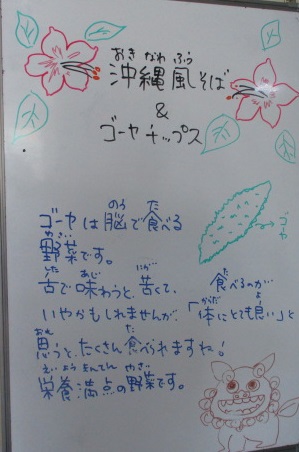 おき なわ ふう
沖縄風そば
&
ゴーヤチップス
ゴーヤ
のう た
ゴーヤは脳で食べる
やさい
野菜です。
した あじ にが た
舌で味わうと、苦くて、食べるのが
からだ よ
いやかもしれませんが、「体にとても良い」と
おも た
思うと、たくさん食べられますね!
えいようまんてん やさい
栄養満点の野菜です。